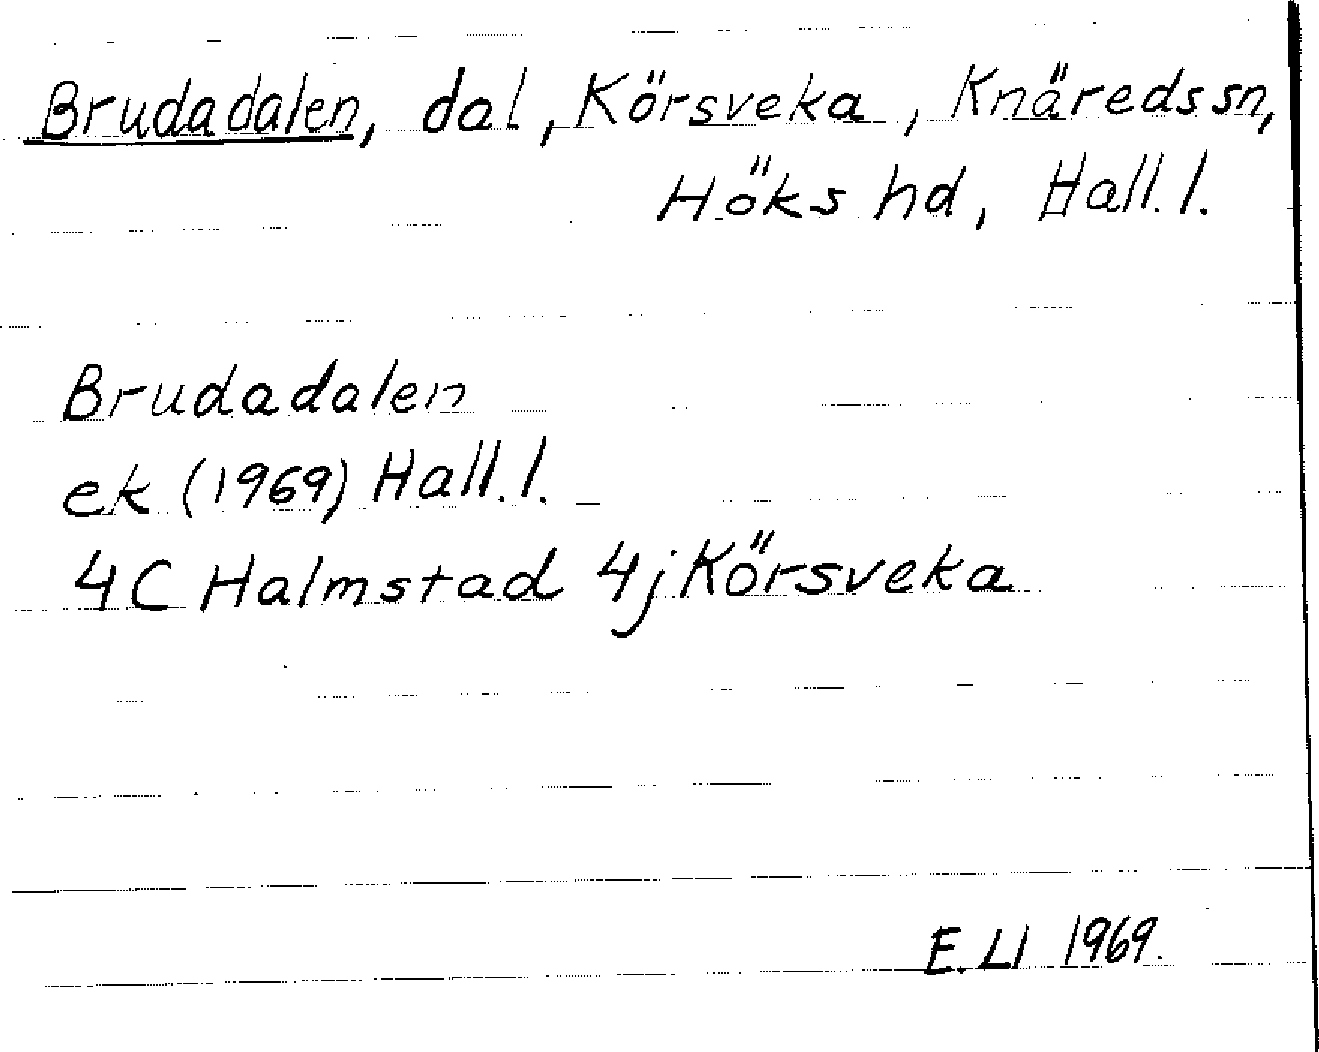 Brudadalen, dal, Körsveka, Knäreds sn,
Höks hd, Hall. l.
Brudadalen
ek (1969) Hall. l.
4C Halmstad 4j Körsveka
E. Ll 1969.